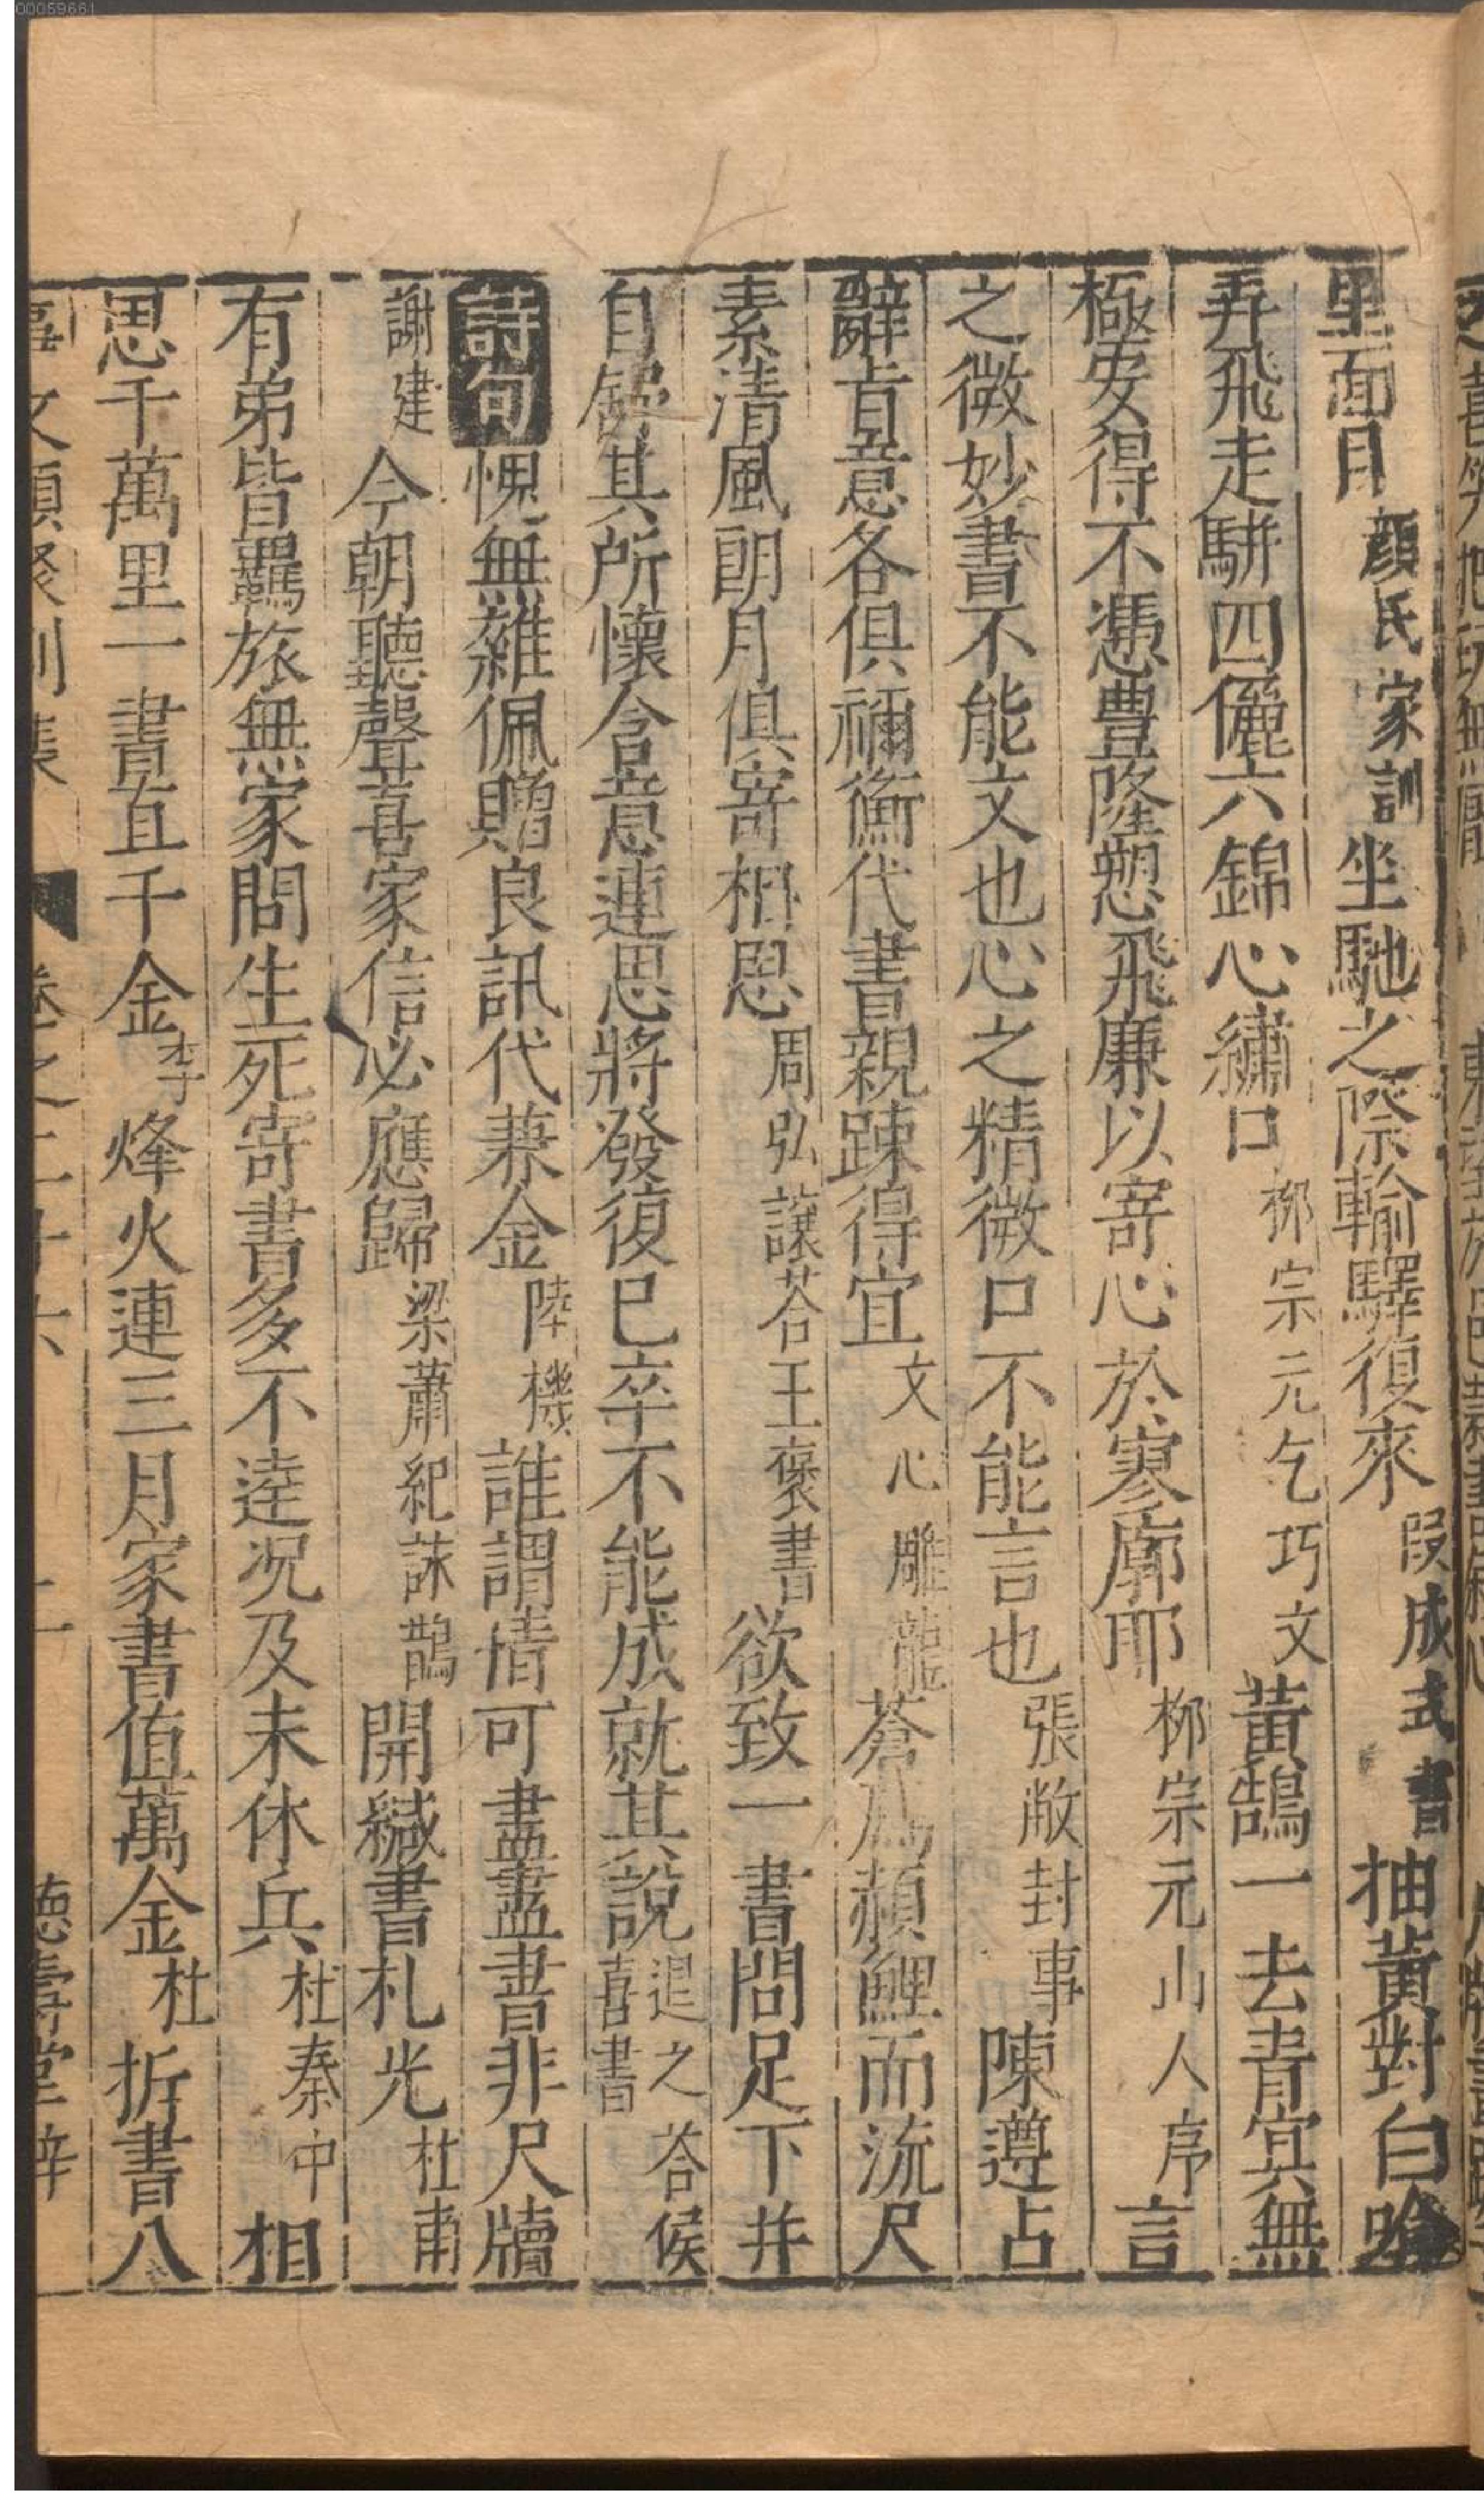 00059661
里面目顔氏家訓坐馳之際輸驛復來段成式書抽黃對白啽
弄飛走駢四儷六錦心繡口柳宗元乞巧文黃鵠一去青冥無
極安得不慿豊隆愬飛廉以寄心於寥廓耶柳宗元山人序言
之微妙書不能文也心之精微口不能言也張敞封事陳遵占
辭㫖意各俱禰衡代書親踈得宜文心雕龍蒼鴈頳鯉而流尺
素清風朗月俱寄相思周弘讓荅王褒書欲致一書問足下并
自舒其所懷含意連思將發復巳卒不能成就其說退之荅侯喜書
詩句愧無雜佩贈良訊代兼金陸機誰謂情可盡盡書非尺牘
謝建今朝聽聲喜家信必應歸梁蕭紀詠鵲開緘書札光杜甫
有弟皆羈旅無家問生死寄書多不逹况及未休兵杜秦中相
思千萬里一書直千金李烽火連三月家書值萬金杜折書八
事文類聚別集 卷之二十六 二 德壽堂梓